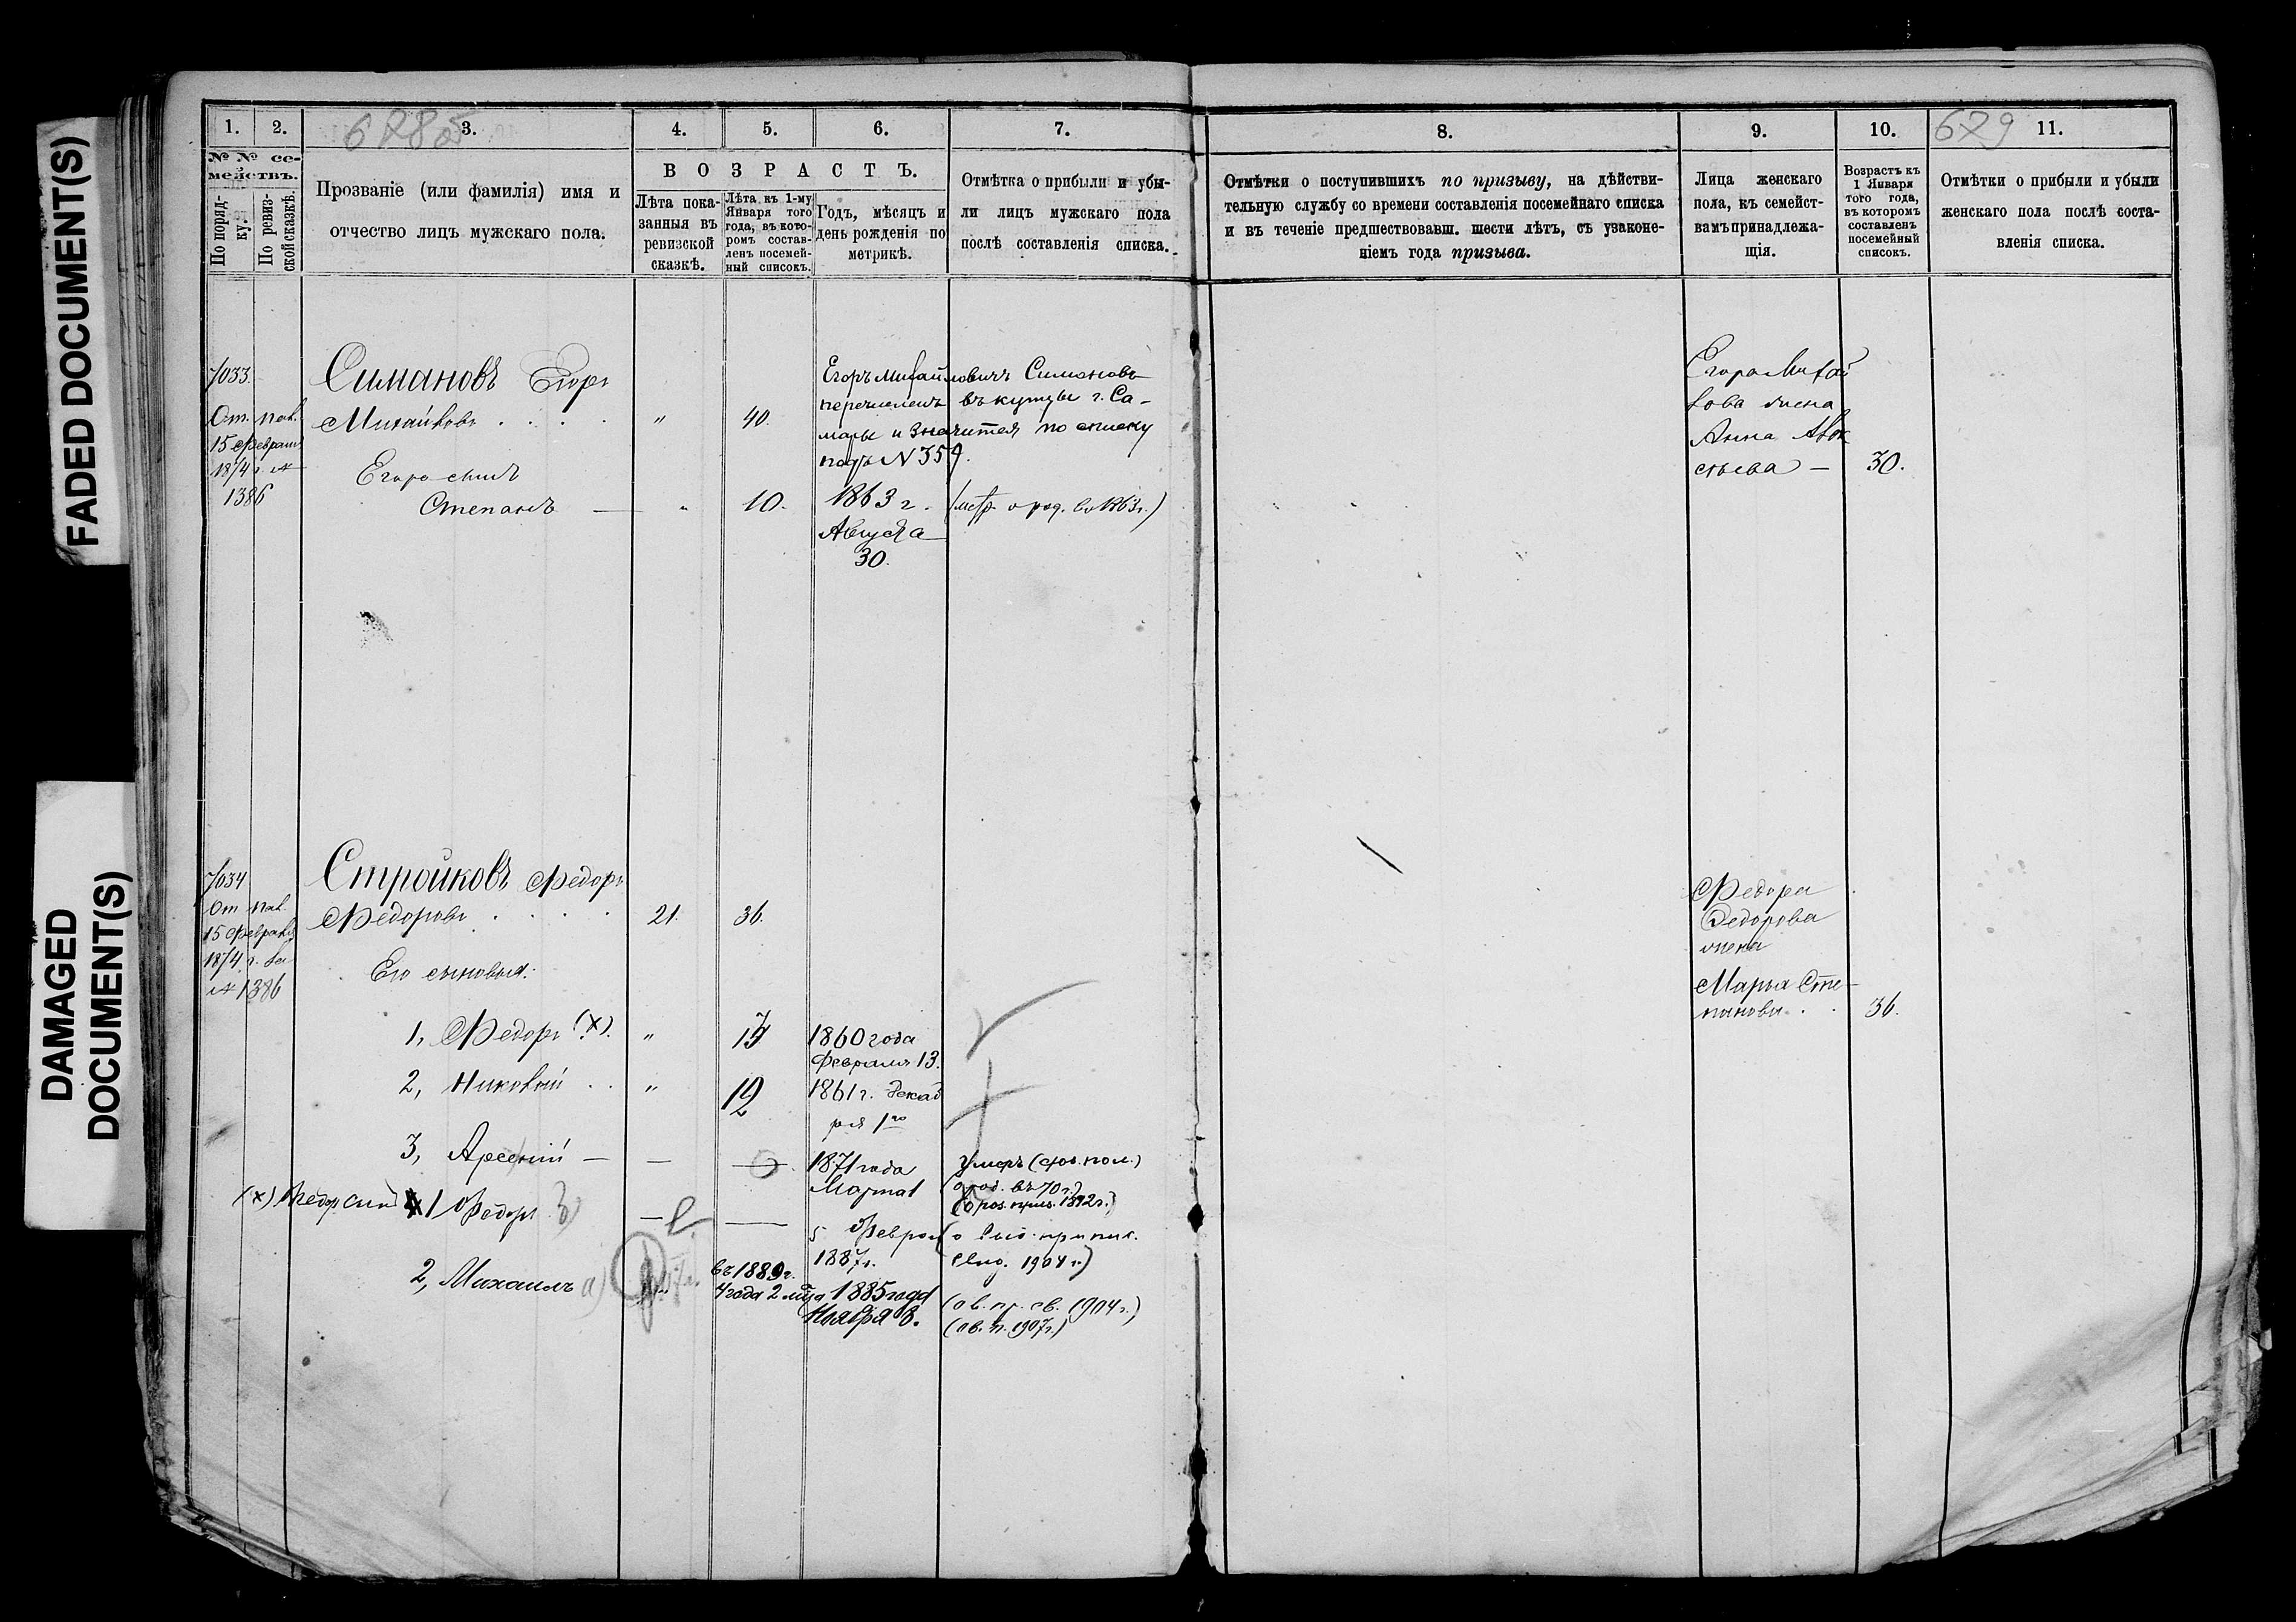 FADED DOCUMENT(S)
DAMAGED DOCUMENT(S)
1. 2. 3. 4. 5. 6. 7.
678
№ № се-
мействъ.
По поряд-
ку.
По ревиз-
ской сказкѣ.
Прозваніе (или фамилія) имя и
отчество лицъ мужскаго пола.
ВОЗРАСТЪ.
Лѣта пока-
занныя въ
ревизской
сказкѣ.
Лѣта къ 1-му
Января того
года, въ кото-
ромъ состав-
ленъ посемей-
ный списокъ.
Годъ, мѣсяцъ и
день рожденія по
метрикѣ.
Отмѣтка о прибыли и убы-
ли лицъ мужскаго пола
послѣ составленія списка.
7033.
От. пов.
15 Февраля
1874 г. №
1386
Симановъ Егоръ
Михайловъ . . . . " 40.
Егоръ Михайловичъ Симоновъ
перечисленъ въ купцы г. Са-
мары и значится по списку
подъ N 359.
Егора сынъ
Степанъ — " 10. 1863 г. (метр. о род. въ 1863 г.)
Августа
30.
7034
От пов.
15 Февраля
1874 г. за
№ 1386
Стройковъ Федоръ
Федоровъ . . . . 21. 36.
Его сыновья:
1, Федоръ (х). " 1860 года
Февраля 13.
2, Николай . . " 12 1861 г. Декаб
ря 1го
3, Арсеній — — 1871 года
Марта 1
Умеръ
(о род. въ 70 г.)
1892 г.)
(х) Федор сын 1 Федоръ — — 5 Феврал
1887 г.
1904 г.)
2, Михаилъ а) въ 1889 г.
4 года 2 мца 1885 года
Ноября 8.
(ов. пр. св. 1904 г.)
(ов. п. 1907 г.)
8. 9. 10. 11.
679
Отмѣтки о поступившихъ по призыву, на дѣйстви-
тельную службу со времени составленія посемейнаго списка
и въ теченіе предшествовавш. шести лѣтъ, съ узаконе-
ніемъ года призыва.
Лица женскаго
пола, къ семейст-
вамъ принадлежа-
щія.
Возрастъ къ
1 Января
того года,
въ которомъ
составленъ
посемейный
списокъ.
Отмѣтки о прибыли и убыли
женскаго пола послѣ соста-
вленія списка.
Егора Михай
лова жена
Анна
— 30.
Федора
Федорова
жена
Марья Сте-
панова . . 36.